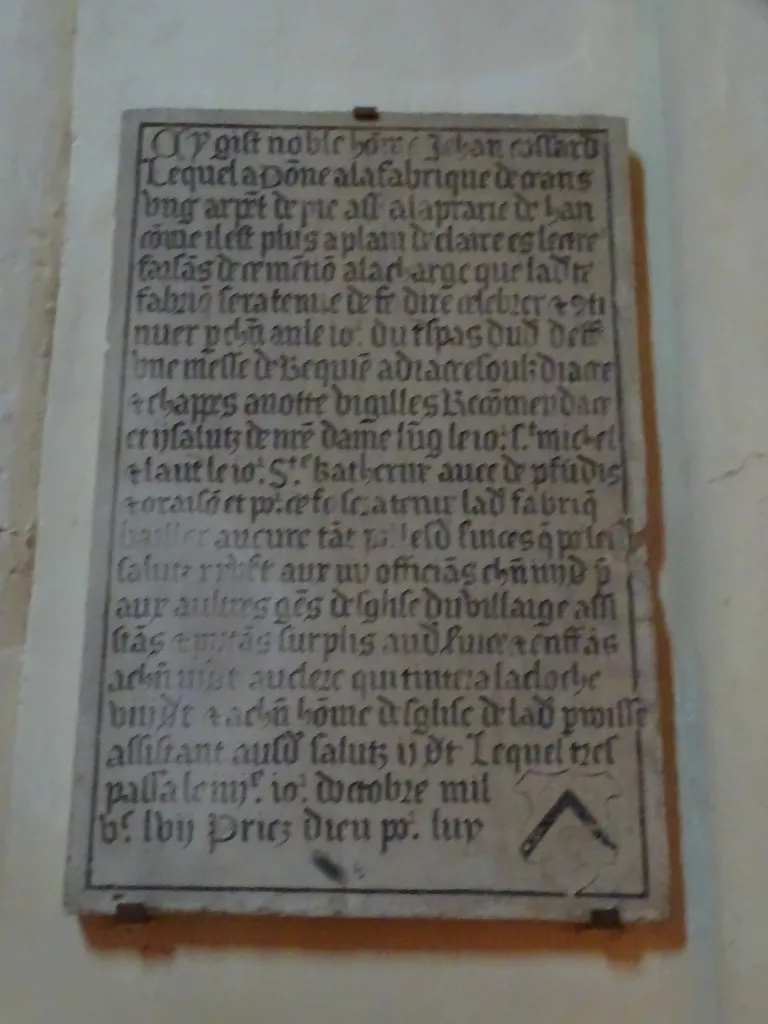 Cy gist noble hõme Jehan cossard
Lequel a Dõne a la fabrique de crans
vng arpẽt de pre ass a la prarie de han
cõme il est plus a plain declaire es lectre
faisãs de ce mẽtiõ a la charge que lad te
fabriq̃ sera tenue de fe dire celebrer & 9ti
nuer p chũ an le ior du tspas dud deff
vne messe de Requiẽ a diacre soulz diacre
& chappes a notte vigilles Recõmendace
et iij salutz de nrẽ dame sũg le ior St michel
& laut le ior Ste Katherine auec de pfũdis
& oraisõ et por ce fe sera tenue lad fabriq̃
bailler aucure tãt lesd suices q̃
salutz aux uv officiãs chũ iiij d p̃
aux aultres gẽs desglise du villaige assi
stãs & surplis aud suice & enffãs
a chũ au clerc qui tintera la cloche
& a chũ hõme desglise de lad prоisse
assistant ausd salutz ij dt Lequel tres
passa le iiije ior doctobre mil
vc lvij Priez dieu por luy